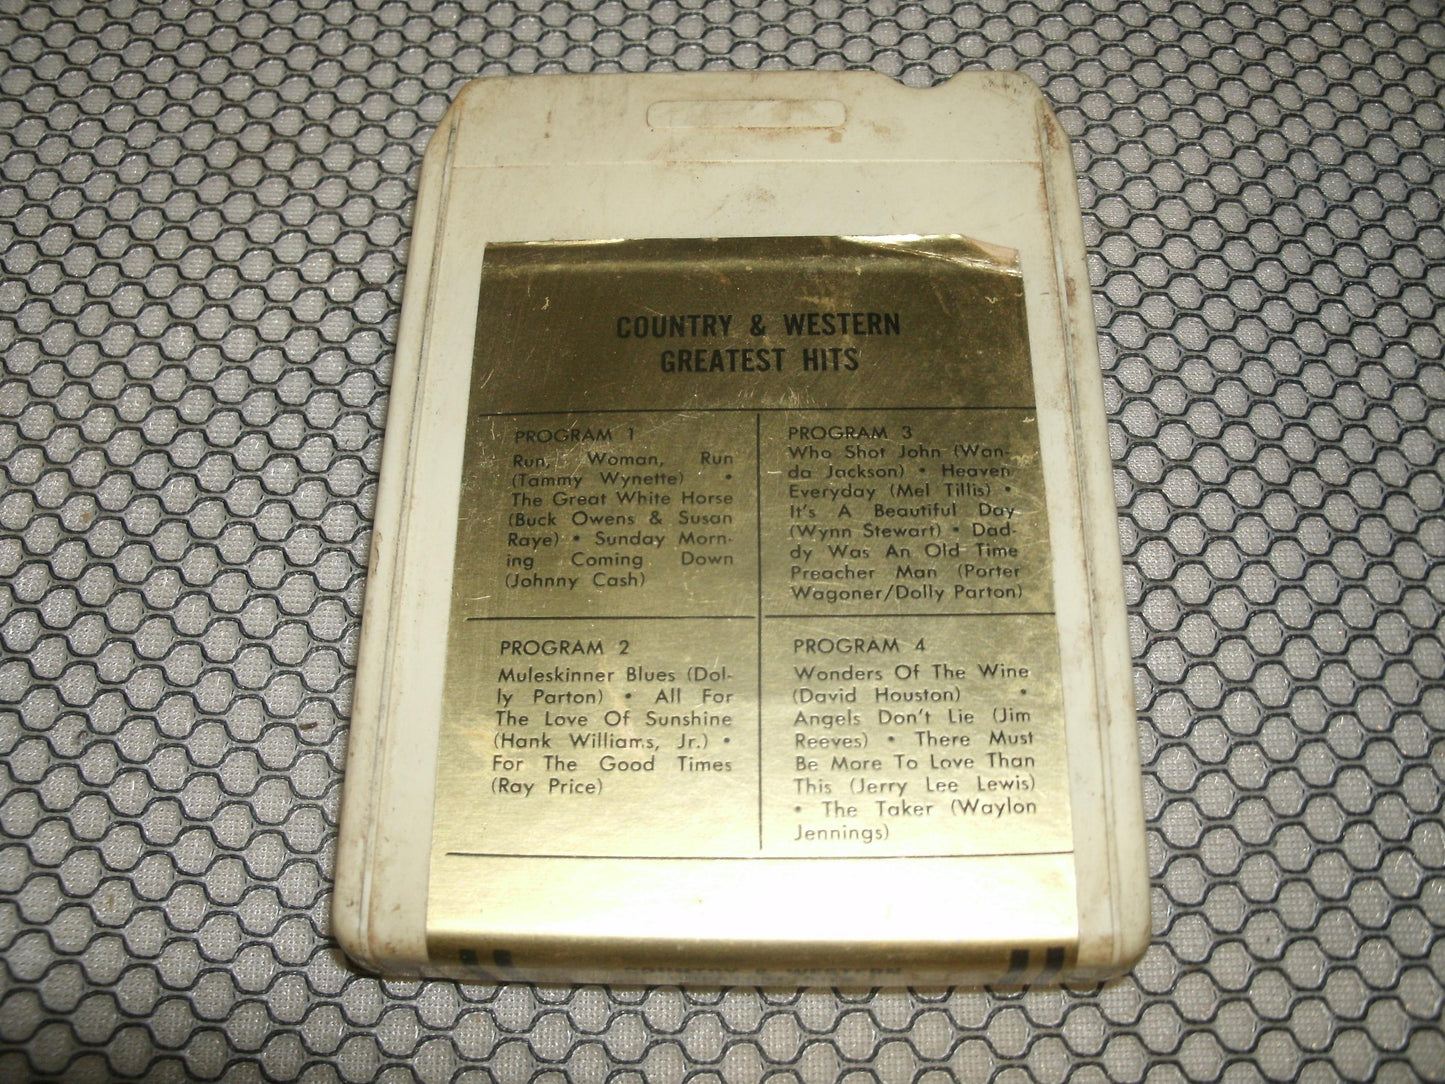 COUNTRY & WESTERN
GREATEST HITS
PROGRAM 1
Run, Woman, Run
(Tammy Wynette) •
The Great White Horse
(Buck Owens & Susan
Raye) • Sunday Morn-
ing Coming Down
(Johnny Cash)
PROGRAM 2
Muleskinner Blues (Dol-
ly Parton) • All For
The Love Of Sunshine
(Hank Williams, Jr.) •
For The Good Times
(Ray Price)
PROGRAM 3
Who Shot John (Wan-
da Jackson) • Heaven
Everyday (Mel Tillis) •
It's A Beautiful Day
(Wynn Stewart) • Dad-
dy Was An Old Time
Preacher Man (Porter
Wagoner/Dolly Parton)
PROGRAM 4
Wonders Of The Wine
(David Houston) •
Angels Don't Lie (Jim
Reeves) • There Must
Be More To Love Than
This (Jerry Lee Lewis)
• The Taker (Waylon
Jennings)
COUNTRY & WESTERN